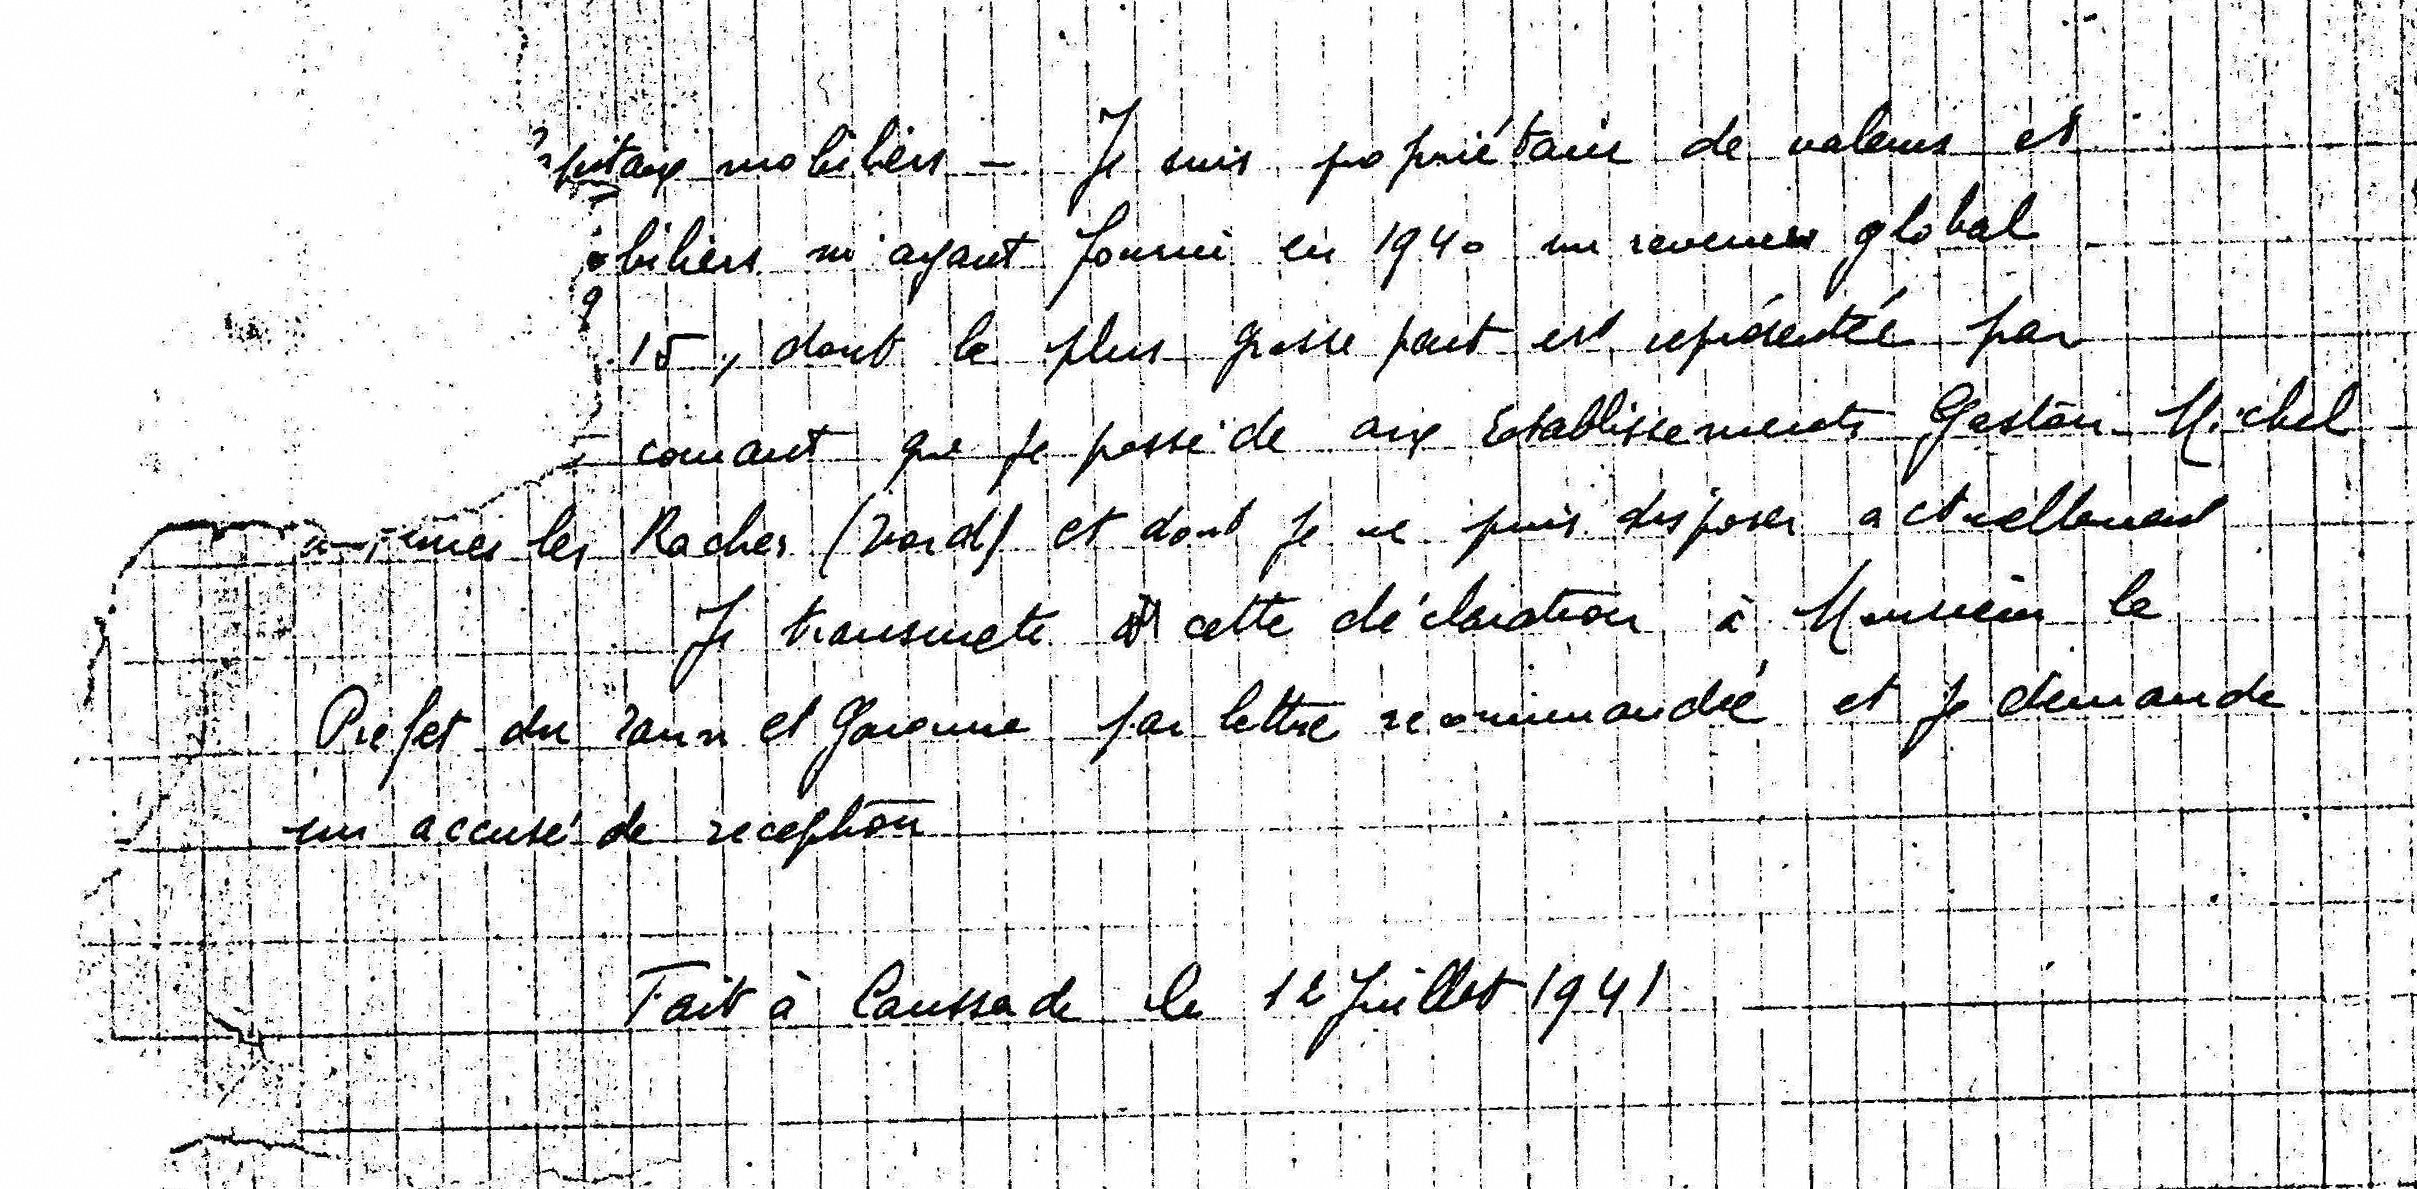 capitaux mobiliers - Je suis propriétaire de valeurs et
biliers m'ayant fourni en 1940 un revenu global
15, dont la plus grosse part est représentée par
courant que je possède aux Etablissements Gaston Michel
les Raches (Nord) et dont je ne puis disposer actuellement
Je transmets cette déclaration à Monsieur le
Prefet du Tarn et Garonne par lettre recommandée et je demande
un accusé de reception
Fait à Caussade le 12 Juillet 1941